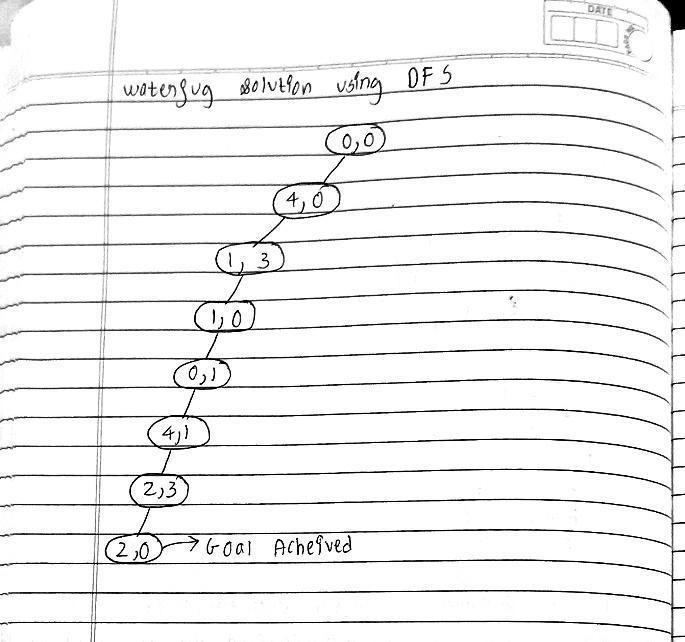 DATE
waterjug solution using DFS
0,0
4,0
1,3
1,0
0,1
4,1
2,3
2,0 → Goal Acheived